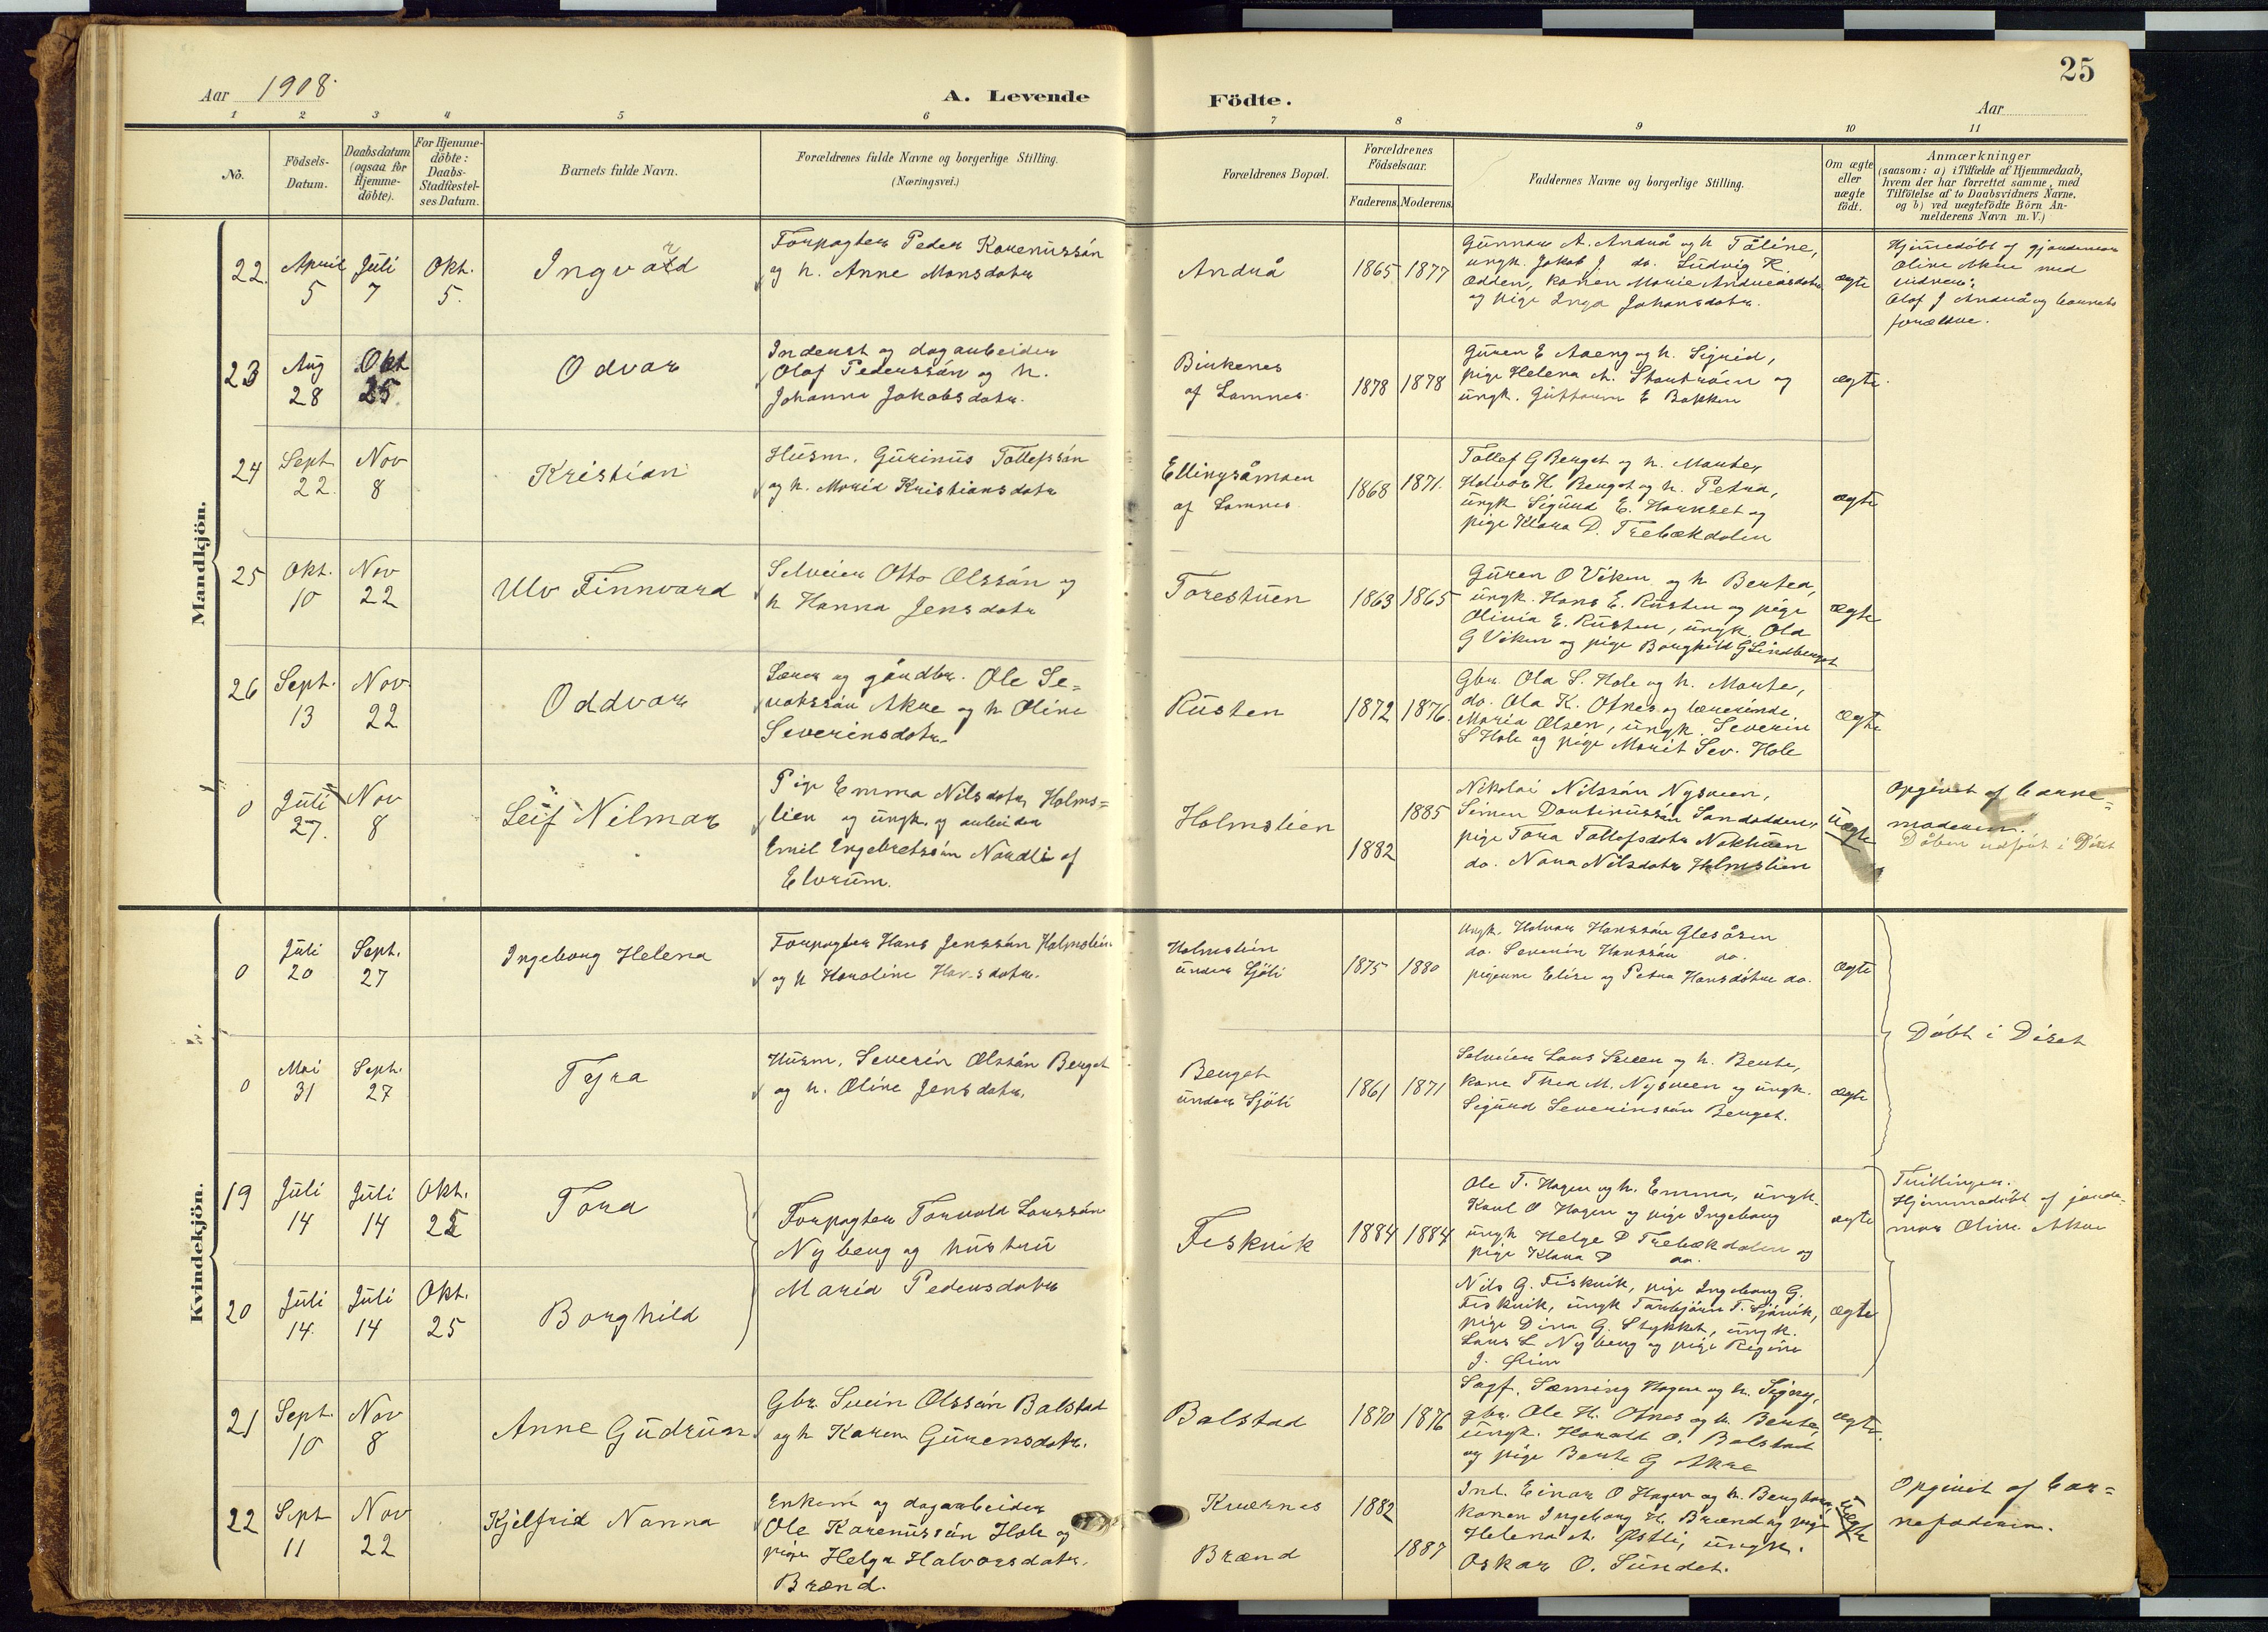 25
Aar 1908.
A. Levende Födte.
Aar
1 2 3 4 5 6 7 8 9 10 11
No.
Födsels-
Datum.
Daabsdatum
(ogsaa for
Hjemme-
döbte).
For Hjemme-
döbte:
Daabs-
Stadfæstel-
ses Datum.
Barnets fulde Navn.
Forældrenes fulde Navne og borgerlige Stilling.
(Næringsvei.)
Forældrenes Bopæl.
Forældrenes
Födselsaar.
Faderens. Moderens.
Faddernes Navne og borgerlige Stilling.
Om ægte
eller
uægte
födt.
Anmærkninger
(saasom: a) i Tilfælde af Hjemmedaab,
hvem der har forrettet samme, med
Tilföielse af to Daabsvidners Navne.
og b) ved uægtefödte Börn An-
melderens Navn m. V.)
Mandkjön.
22. April 5 Juli 7 Okt. 5.
Ingvald
Forpagter Peder Karenussön
og h. Anne Monsdotr
Andrå
1865 1877
Gunnar A. Andrå og h Tåline,
ungk. Jakob J. do. Ludvig K.
Odden, konen Marie Andreasdotr
og pige Inga Johansdotr.
ægte
Hjemedöbt af gjordemor
Oline Akre med
vidner:
Olof J Andrå og barnets
forældre.
23 Aug 28 Okt 25.
Odvar
Inderst og dagarbeider
Olof Pederssön og h.
Johanna Jakobsdotr.
Birkenes
af Lomnes.
1878 1878
Guren E Aaeng og h. Sigrid,
pige Helena A. Stortröen og
ungk. Guttorm E Bakken
ægte.
24 Sept 22. Nov 8
Kristian
Husm. Gurinus Tollefssön
og h. Marid Kristiansdotr
Ellingsåmoen
af Lomnes
1868 1871.
Tollef G Berget og h. Marte,
Halvor H. Berget og h. Petra,
ungk Sigurd E. Harnset og
pige Klara D. Trebækdalen
ægte
25 Okt. 10 Nov 22
Ulv Finnvard
Selveier Otto Olssön og
h Hanna Jensdotr
Torestuen
1863 1865
Guren O Viken og h Bertea,
ungk. Hans E. Rusten og pige
Olivia E. Rusten, ungk. Ola
G Viken og pige Borghild G Lindberget
ægte
26 Sept. 13 Nov. 22
Oddvar
Lærer og gårdbr. Ole Se=
vatssön Akre og h Oline
Severinsdotr.
Rusten
1872 1876.
Gbr. Ola S. Hole og h. Marte,
do. Ola K. Otnes og lærerinde
Maria Olsen, ungk. Severin
S Hole og pige Marit Sev. Hole
ægte
0 Juli 27. Nov 8
Leif Nilmar
Pige Emma Nilsdotr Holms=
lien og ungk. og arbeider
Emil Engebretssön Nordli af
Elvrum.
Holmslien
1882 1885
Nikolai Nilssön Nysveen,
Simen Dortinussön Sandodden,
pige Tora Tollofsdotr Nekkuen
do. Nana Nilsdotr Holmslien
uægte
Opgivet af barne=
moderen.
Döben udfört i Döset
Kvindekjön.
0 Juli 20 Sept. 27
Ingeborg Helena
Forpagter Hans Jenssön Holmslien
og h Karoline Hansdotr.
Holmslien
under Sjöli
1875 1880
Ungk. Halvor Hanssön Glesåsen
do. Severin Hanssön do.
pigerne Elise og Petra Hansdötre do.
ægte
0 Mai 31 Sept. 27
Tyra
Husm. Severin Olssön Berget
og h. Oline Jensdotr.
Berget
under Sjöli
1861 1871
Selveier Lars Sveen og h. Berte,
kone Thea M. Nysveen og ungk.
Sigurd Severinssön Berget.
ægte
Döbt i Döset
19 Juli 14 Juli 14 Okt. 25
Tora
Forpagter Torvald Larssön
Nyberg og hustru
Marid Pedersdotr
Fiskvik
1884 1884
Ole T. Hagen og h. Emma, ungk.
Karl O Hagen og pige Ingeborg
ungk Helge D Trebækdalen og
pige Klara D do.
ægte
Tvillinger.
Hjemmedöbt af jorde-
mor Oline Akre
20 Juli 14. Juli 14 Okt. 25
Borghild
Nils G. Fiskvik, pige Ingeborg G.
Fiskvik, ungk Torbjörn T. Sjåvik,
pige Dina G. Stykket, ungk.
Lars L Nyberg og pige Regine
J. Öien
ægte
21 Sept. 10 Nov 8
Anne Gudrun
Gbr. Svein Olssön Balstad
og h Karen Gurensdotr.
Balstad
1870 1876
Sagf. Sæming Hagen og h. Signy,
gbr. Ole H. Otnes og h. Berte,
ungk. Harald O. Balstad
og pige Berte G Akre
ægte.
22 Sept 11 Nov 22
Kjelfrid Nanna
Enkem og dagarbeider
Ole Karenussön Hole og
pige Helga Halvorsdotr.
Brænd.
Kværnes
Brænd
1882 1887
Ind. Einar O Hagen og h. Bergliot,
konen Ingeborg H. Brænd og pige
Helena A. Østli, ungk.
Oskar O. Sundet.
uægte
Opgivet af bar=
nefaderen.